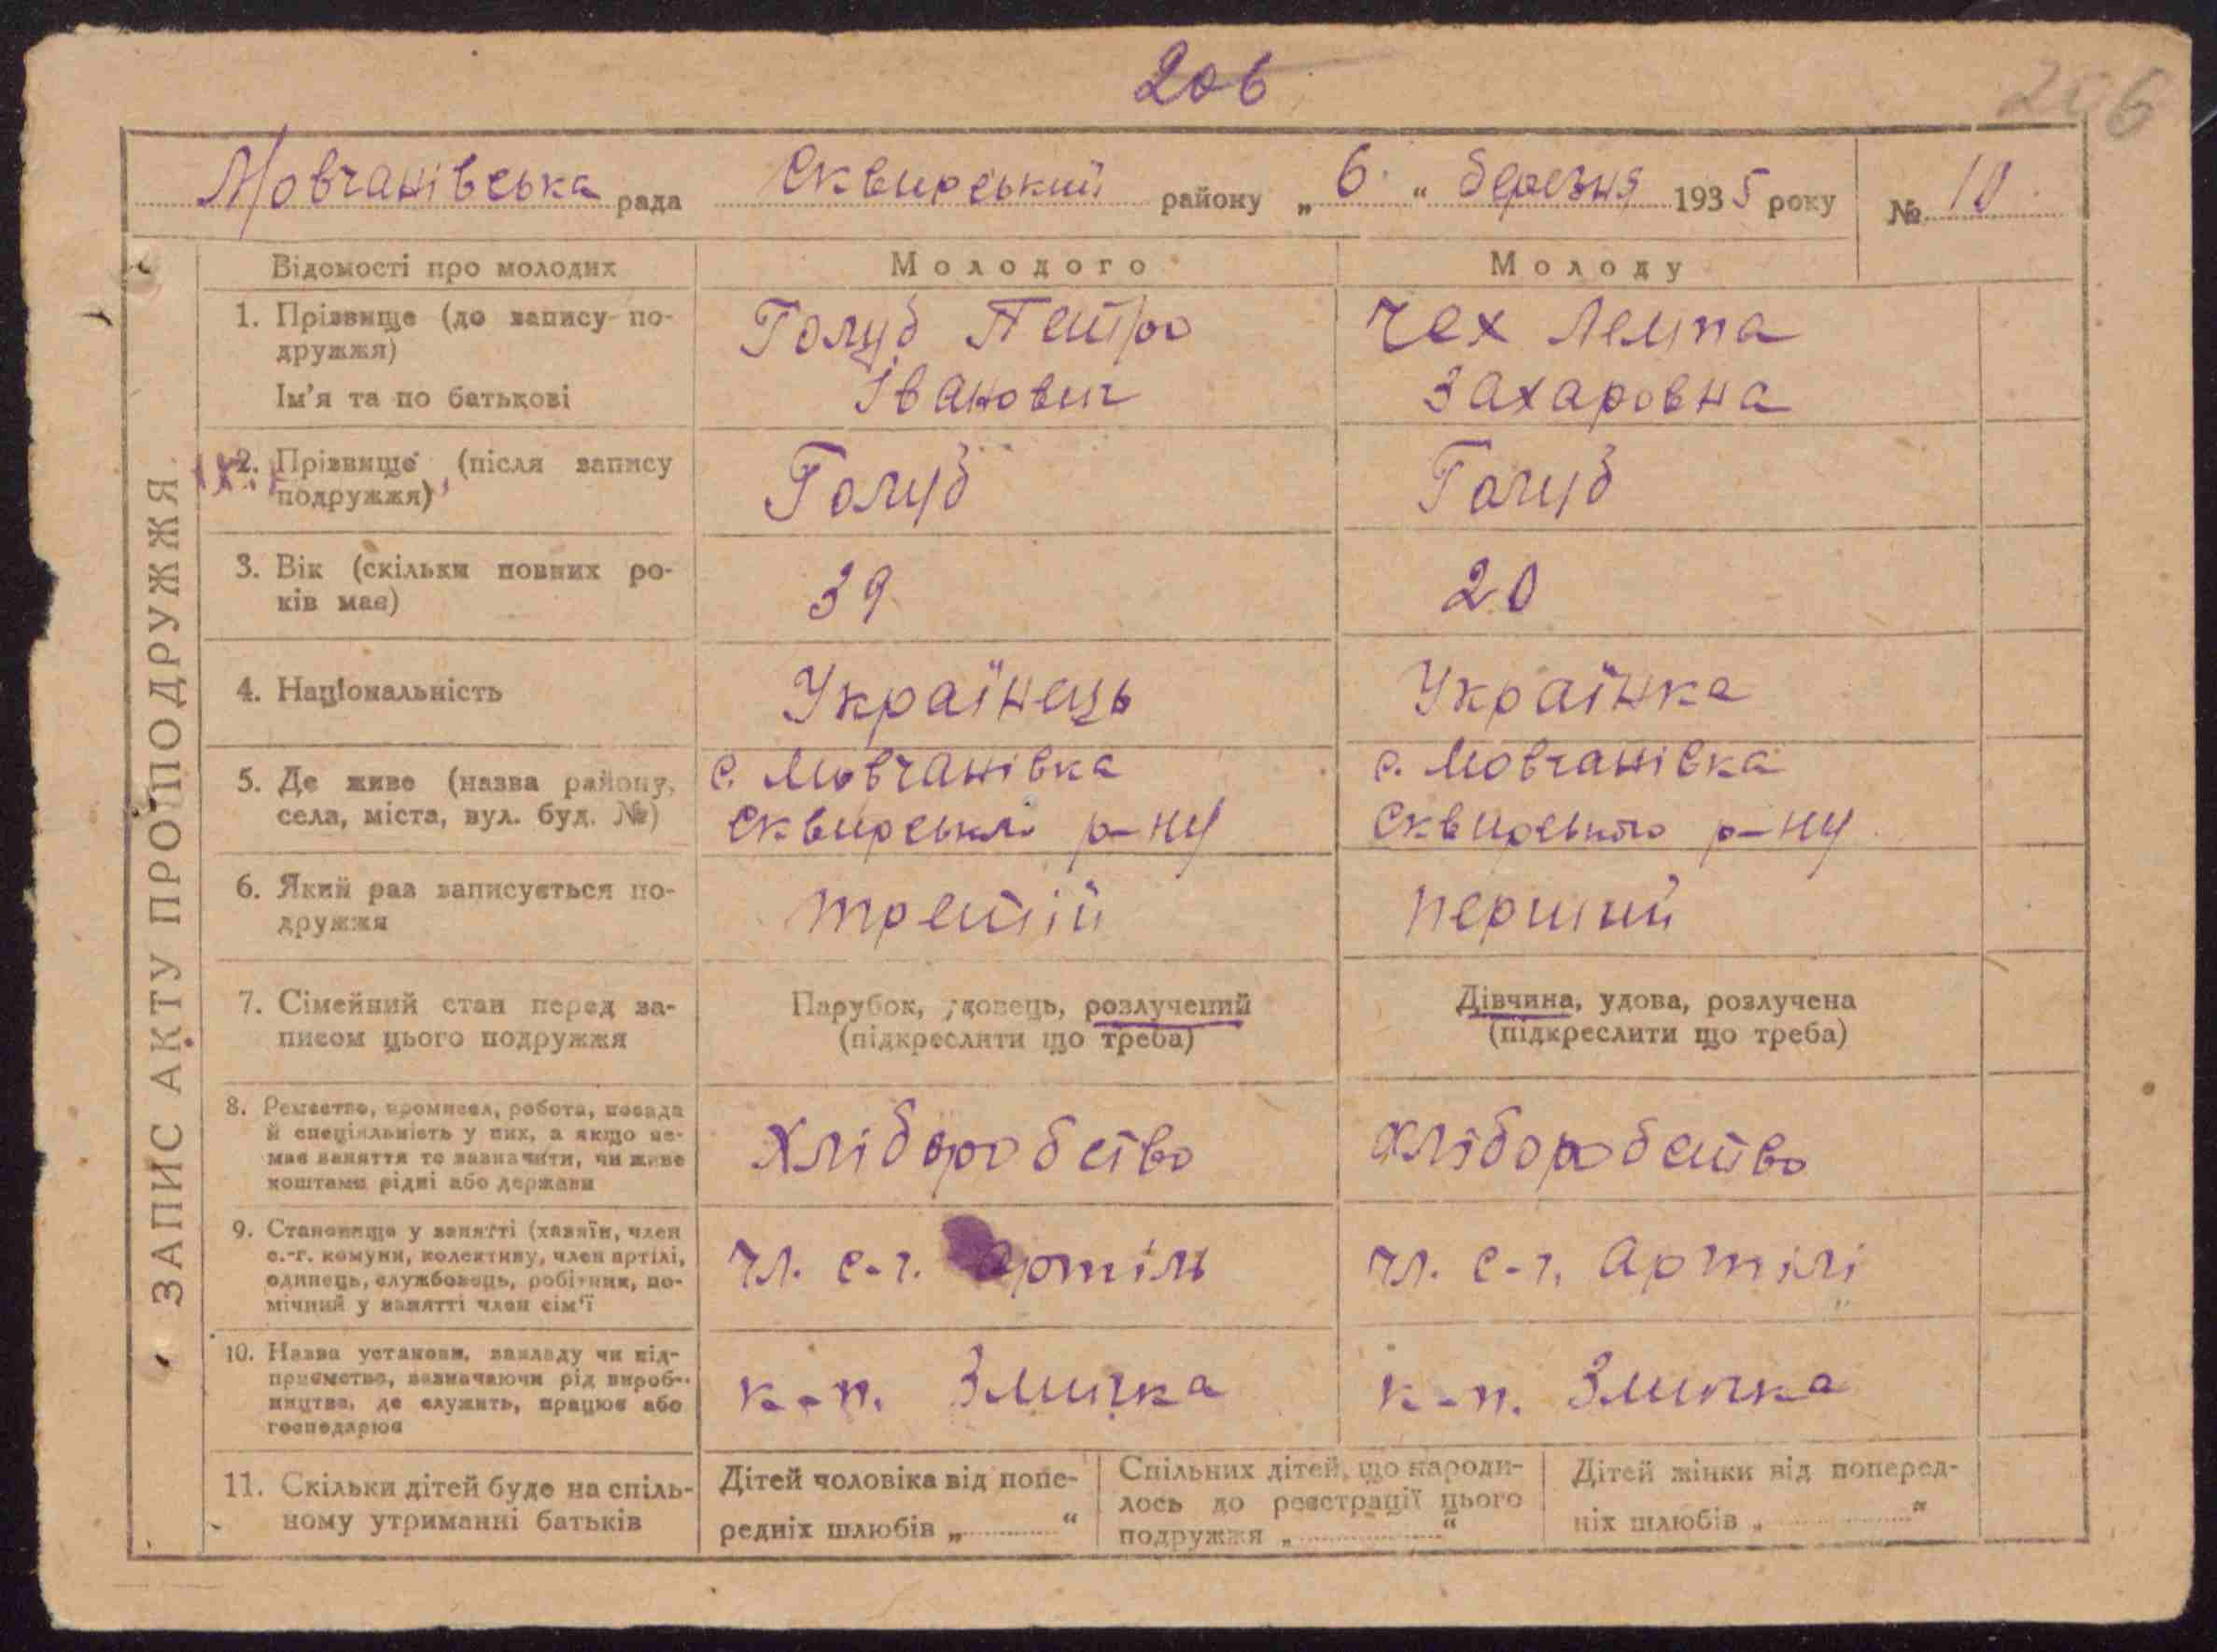 206
206
Мовчанівська рада Сквирський району „6“ березня 1935 року № 10
ЗАПИС АКТУ ПРО ПОДРУЖЖЯ
Відомості про молодих
Молодого
Молоду
1. Прізвище (до запису по-
дружжя)
Ім'я та по батькові
Голуб Петро
Іванович
Чех Лемпа
Захаровна
2. Прізвище (після запису
подружжя)
Голуб
Голуб
3. Вік (скільки повних ро-
ків має)
39
20
4. Національність
Українець
Українка
5. Де живе (назва району,
села, міста, вул. буд. №)
с. Мовчанівка
Сквирського р-ну
с. Мовчанівка
Сквирського р-ну
6. Який раз записується по-
дружжя
третій
перший
7. Сімейний стан перед за-
писом цього подружжя
Парубок, удовець, розлучений
(підкреслити що треба)
Дівчина, удова, розлучена
(підкреслити що треба)
8. Ремество, промисел, робота, посада
й спеціяльність у них, а якщо не-
має заняття то зазначити, чи живе
коштами рідні або держави
Хліборобство
хліборобство
9. Становище у занятті (хазяїн, член
с.-г. комуни, колективу, член артілі,
одинець, службовець, робітник, по-
мічний у занятті член сім'ї
чл. с-г. артіль
чл. с-г. артілі
10. Назва установи, закладу чи під-
приємства, зазначаючи рід вироб-
ництва, де служить, працює або
господарює
к-п. Змичка
к-п. Змичка
11. Скільки дітей буде на спіль-
ному утриманні батьків
Дітей чоловіка від попе-
редніх шлюбів „ “
Спільних дітей, що народи-
лось до реєстрації цього
подружжя „ “
Дітей жінки від поперед-
ніх шлюбів „ “